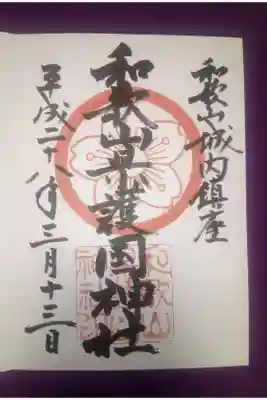 和歌山城内鎮座
和歌山県護国神社
平成二十八年三月十三日